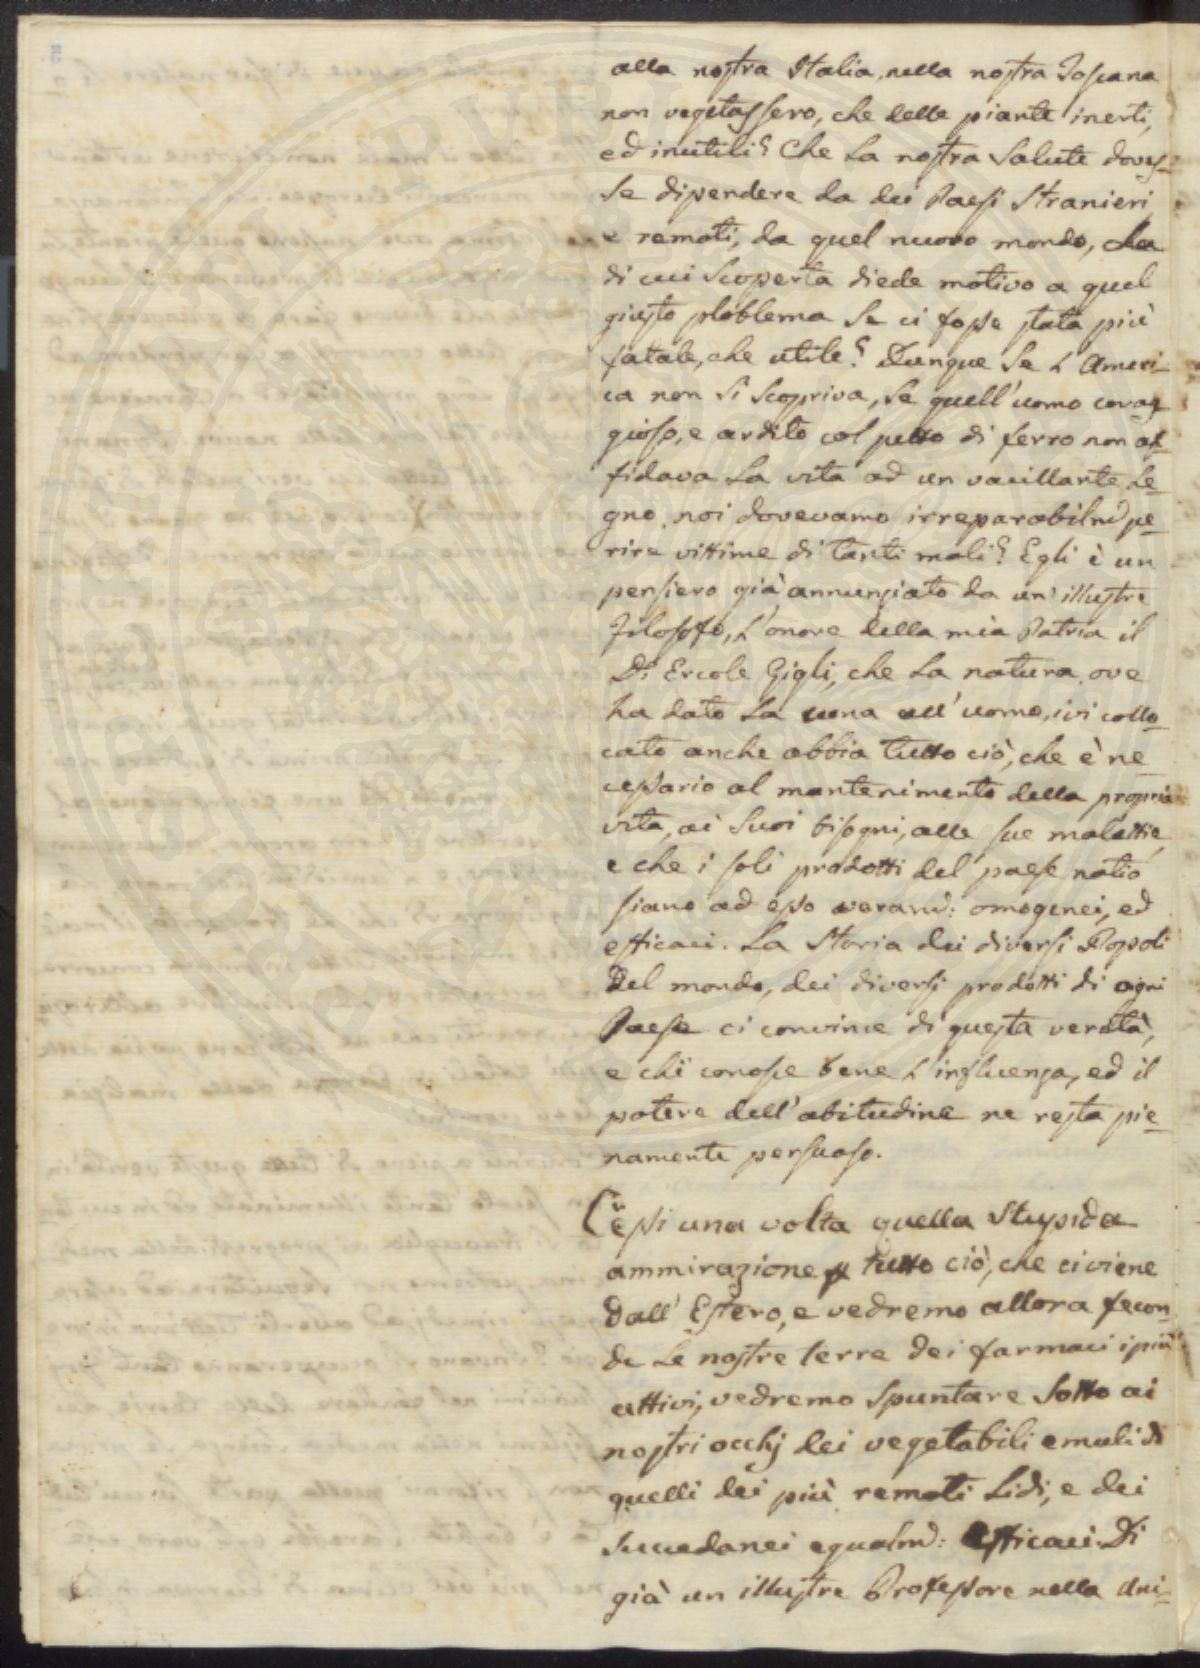 alla nostra Italia, nella nostra Toscana
non vegetassero, che delle piante inerti,
ed inutili? Che La nostra Salute doves-
se dipendere da dei Paesi Stranieri
e remoti, da quel nuovo mondo, La
di cui Scoperta diede motivo a quel
giusto ploblema Se ci fosse stata più
fatale, che utile? Dunque Se L'Ameri-
ca non Si Scopriva, Se quell'uomo corag-
gioso, e ardito col petto di ferro non af-
fidava La vita ad un vacillante Le-
gno, noi dovevamo irreparabilm: pe-
rire vittime di tanti mali? Egli è un
pensiero già annunziato da un'illustre
Filosofo, L'onore della mia Patria il
D: Ercole Gigli, che La natura, ove
ha dato La cuna all'uomo, ivi collo-
cato anche abbia tutto ciò, che è ne-
cessario al mantenimento della propria
vita, ai Suoi bisogni, alle sue malattie,
e che i soli prodotti del paese natio
siano ad esso veram: omogenei, ed
efficaci. La Storia dei diversi Popoli
del mondo, dei diversi prodotti di ogni
Paese ci convince di questa verità,
e chi conosce bene L'influenza, ed il
potere dell'abitudine ne resta pie-
namente persuaso.
Cessi una volta quella Stupida
ammirazione p tutto ciò, che ci viene
dall'Estero, e vedremo allora fecon-
de Le nostre terre dei farmaci i più
attivi, vedremo Spuntare Sotto ai
nostri occhj dei vegetabili emuli di
quelli dei più remoti Lidi, e dei
Succedanei egualm: efficaci. Di
già un illustre Professore nella Uni-